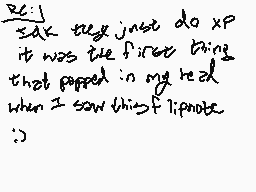 RE:]
Idk they just do XP
it was the first thing
that popped in my head
when I saw this flipnote
:)